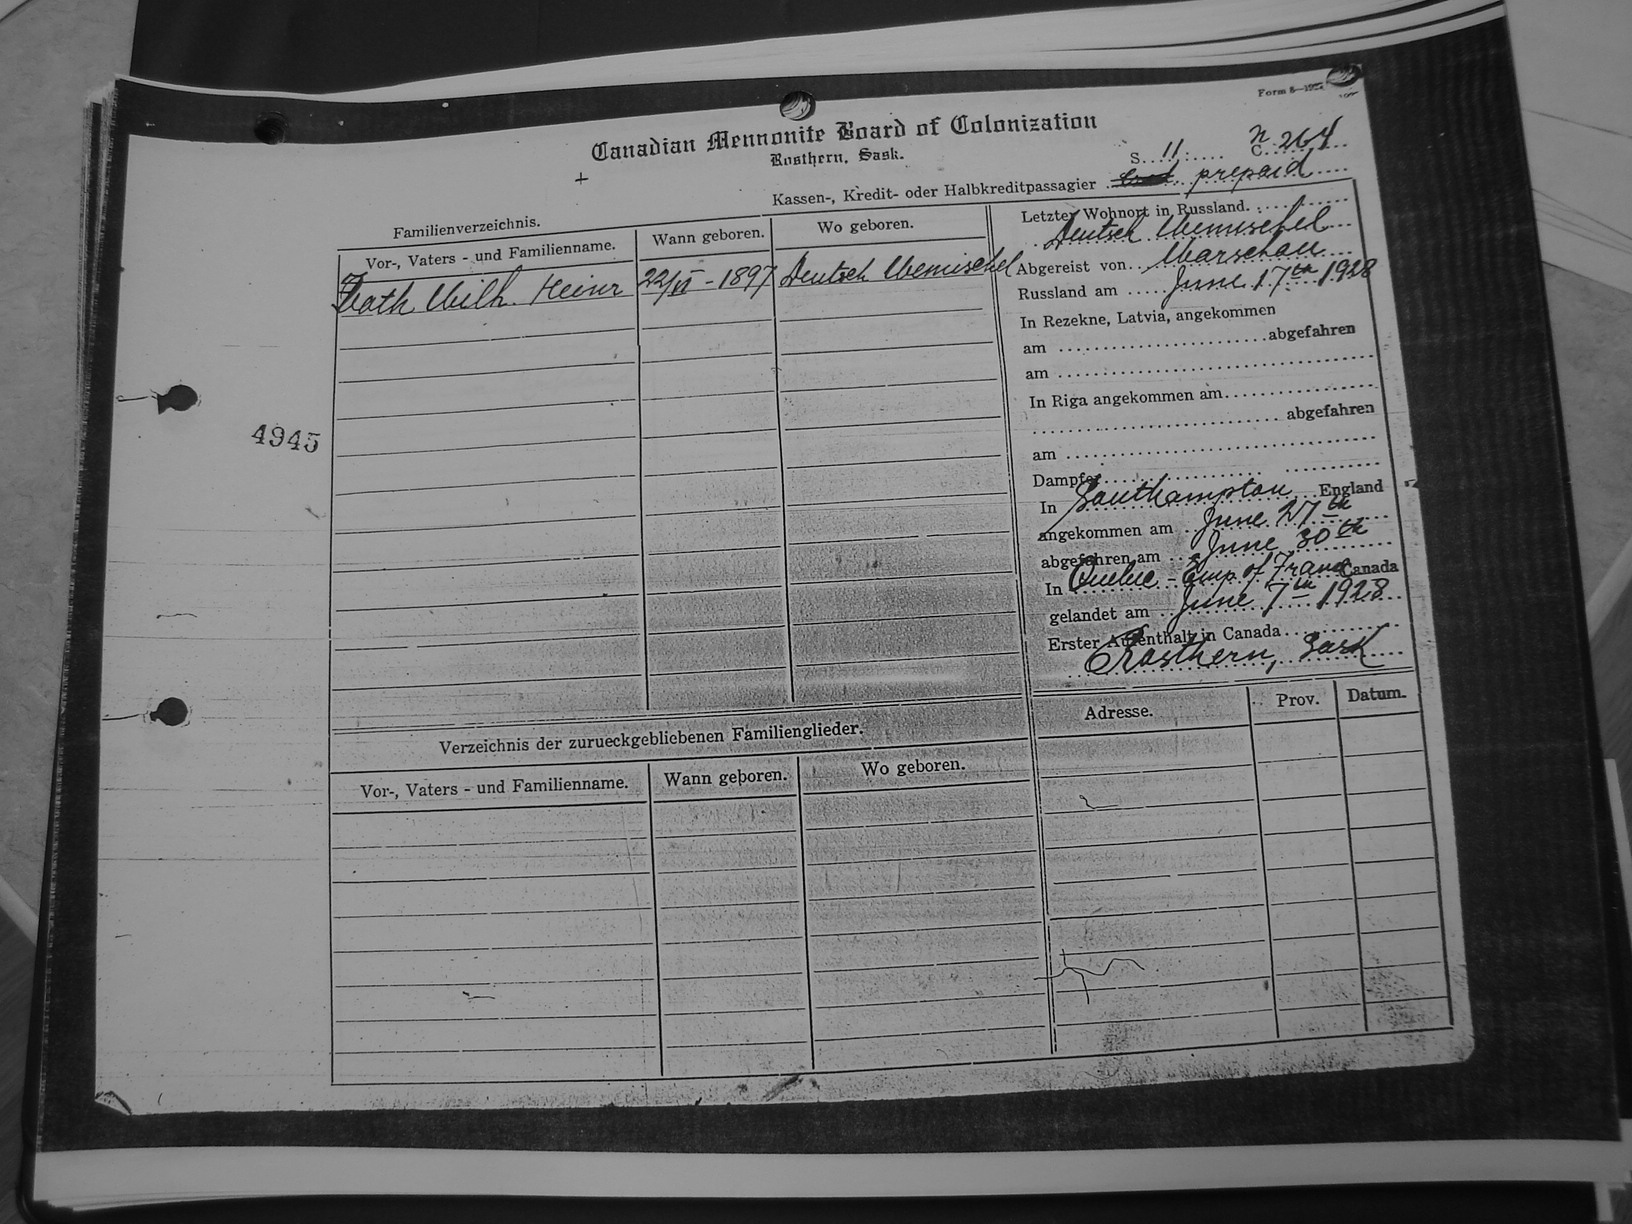 Form 8—1924
Canadian Mennonite Board of Colonization
Rosthern, Sask.
S. 11 C. N 264
Kassen-, Kredit- oder Halbkreditpassagier prepaid
Familienverzeichnis.
Vor-, Vaters - und Familienname. Wann geboren. Wo geboren.
Wilh. Heinr 22/VI - 1897 Deutsch Wemischel
4945
Letzter Wohnort in Russland.
Deutsch Wemischel
Abgereist von Warschau
Russland am June 17th 1928
In Rezekne, Latvia, angekommen
am abgefahren
am
In Riga angekommen am
abgefahren
am
Dampfer
In Southampton England
angekommen am June 27th
abgefahren am June 30th
In Quebec - Emp of France Canada
gelandet am June 7th 1928
Erster Aufenthalt in Canada
Rosthern, Sask
Adresse. Prov. Datum.
Verzeichnis der zurueckgebliebenen Familienglieder.
Vor-, Vaters - und Familienname. Wann geboren. Wo geboren.